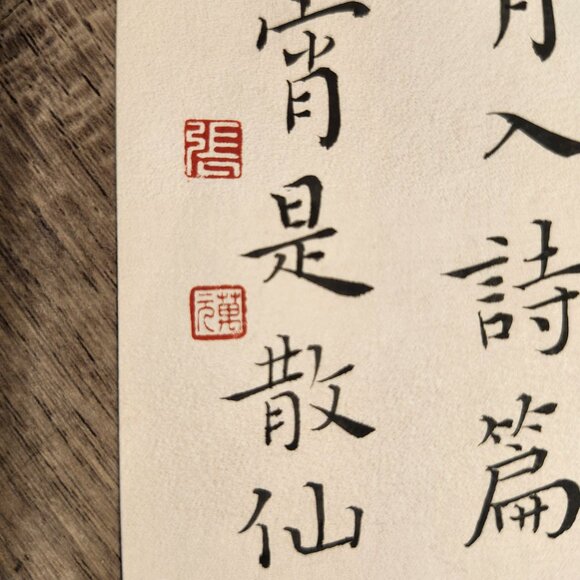 入詩篇
宵是散仙
張